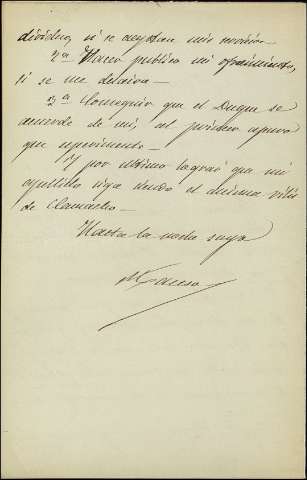 dividuo, si se aceptan mis servicios—
2ª Hacer publico mi ofrecimiento,
si se me desaira—
3ª Conseguir que el Duque se
acuerde de mi, al primer apuro
que experimente—
Y por ultimo lograré que mi
apellido siga siendo el
de
Hasta la noche suya